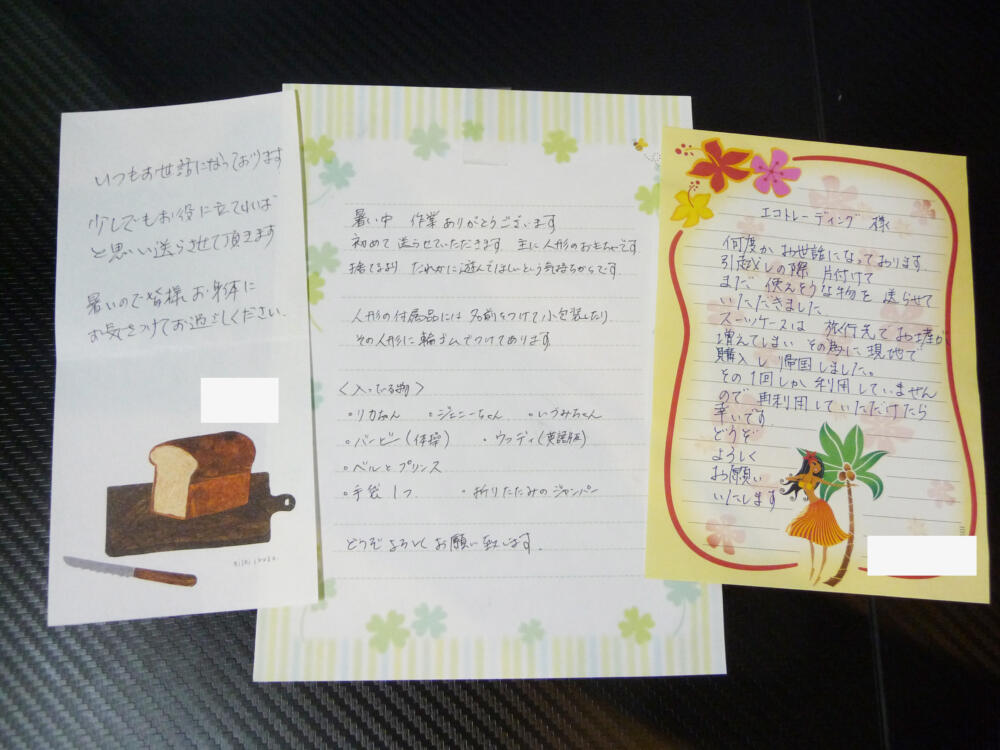 いつもお世話になっております
少しでもお役に立てれば
と思い送らせて頂きます
暑いので皆様お身体に
お気をつけてお過ごしください。
暑い中 作業ありがとうございます
初めて送らせていただきます 主に人形のおもちゃです
捨てるより だれかに遊んでほしいという気持ちからです。
人形の付属品には 名前をつけて小包装したり、
その人形に輪ゴムでつけてあります
〈入っている物〉
・リカちゃん ・ジェニーちゃん ・いづみちゃん
・バービー(体操) ・ウッディ(英語版)
・ベルとプリンス
・手袋1つ ・折りたたみのジャンパー
どうぞよろしくお願い致します。
エコトレーディング 様
何度か お世話になっております。
引越しの際、片付けて
まだ 使えそうな物を 送らせて
いただきました。
スーツケースは 旅行先で お土産が
増えてしまい その為に 現地で
購入し 帰国しました。
その1回しか 利用していません
ので 再利用していただけたら
幸いです。
どうぞ
よろしく
お願い
いたします